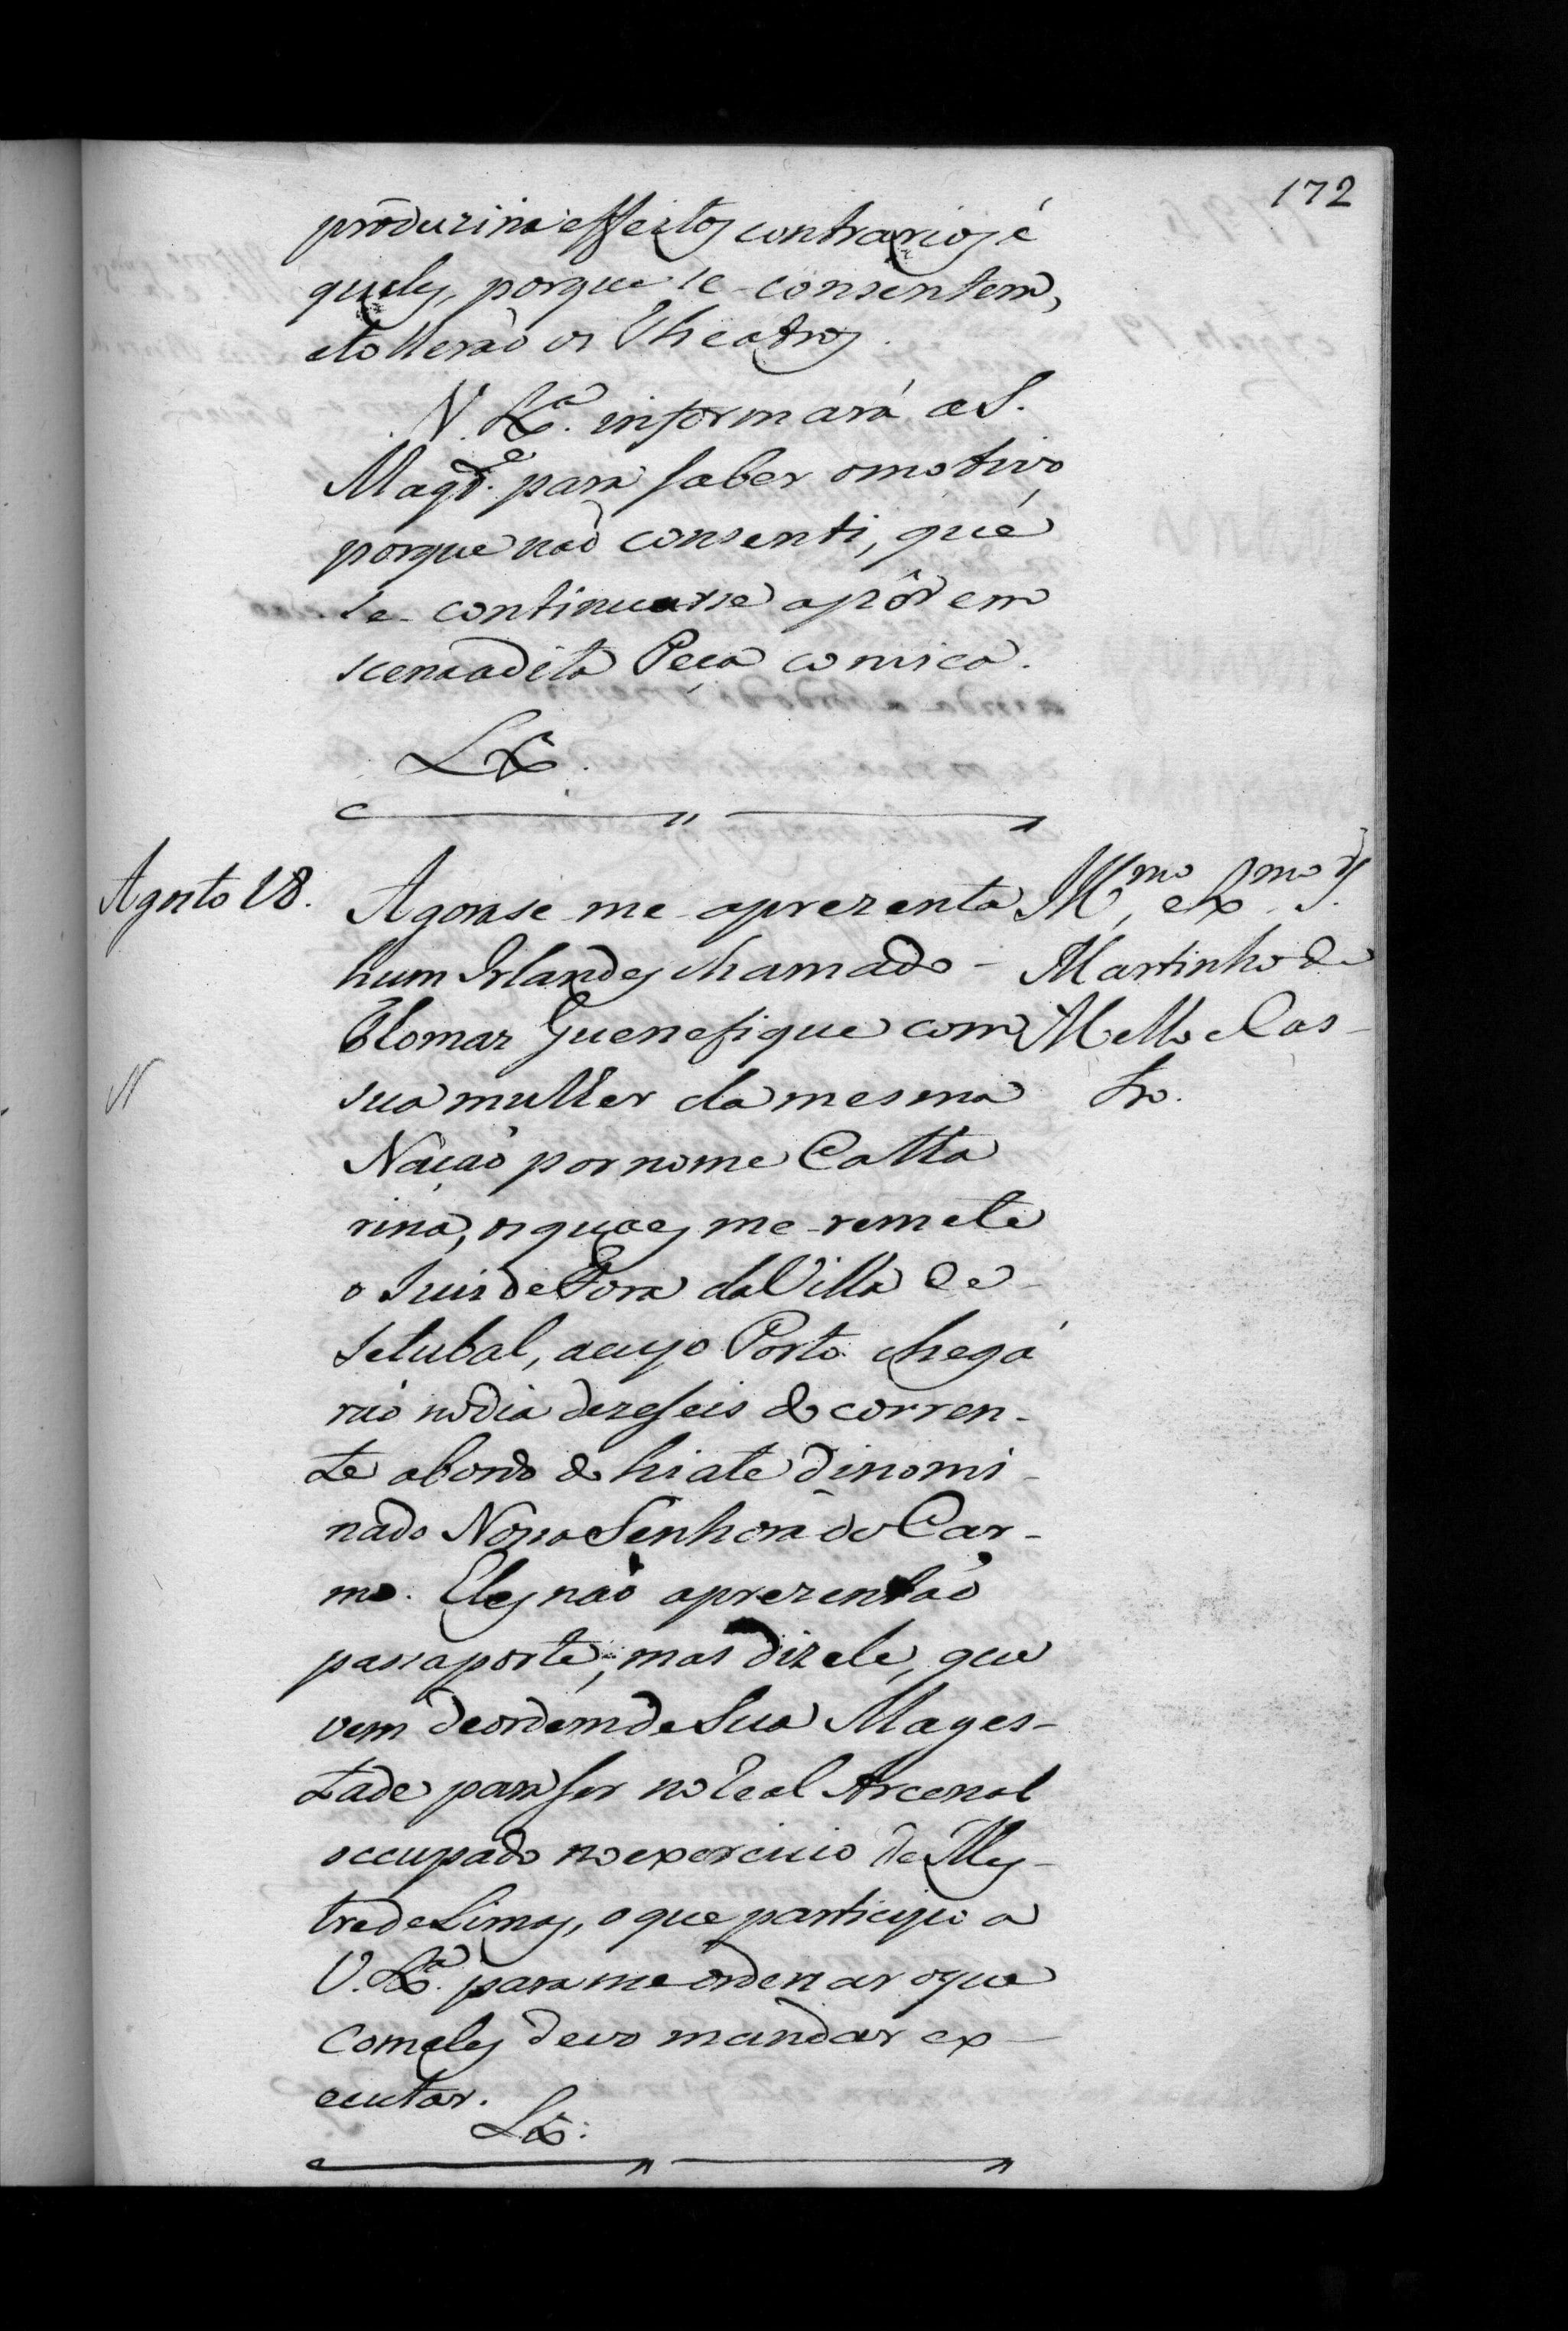 172
produziria effeitos contrarios é
queles, porque se consentem,
etollerão os Theatros.
V. Ex.ª informará a S.
Magd.e para saber omotivo
porque não consenti, que
se continuasse apôr em
scenaadita Peça comica.
Lx.ª
Agosto 18.
Agora se me aprezenta
hum Irlandes chamado -
Thomaz Guenefique com
sua mulher da mesma
Nação por nome Catta
rina, os quaes me remete
o Juis de Fora da Villa de
Setubal, acujo Porto chegá
rão nodia dezeseis do corren-
te abordo do hiate dinomi-
nado Nossa Senhora do Car-
mo. Eles não aprezentão
passaporte; mas diz ele, que
vem deordem de Sua Mages-
tade para ser no Real Arcenal
occupado no exercicio de Mes-
tre de Limas, o que participo a
V. Ex.ª para me ordenar oque
comeles devo mandar ex-
ecutar.
Lx.ª
Ill.mo, e Ex.mo S.r
Martinho de
Mello eCas-
tro.